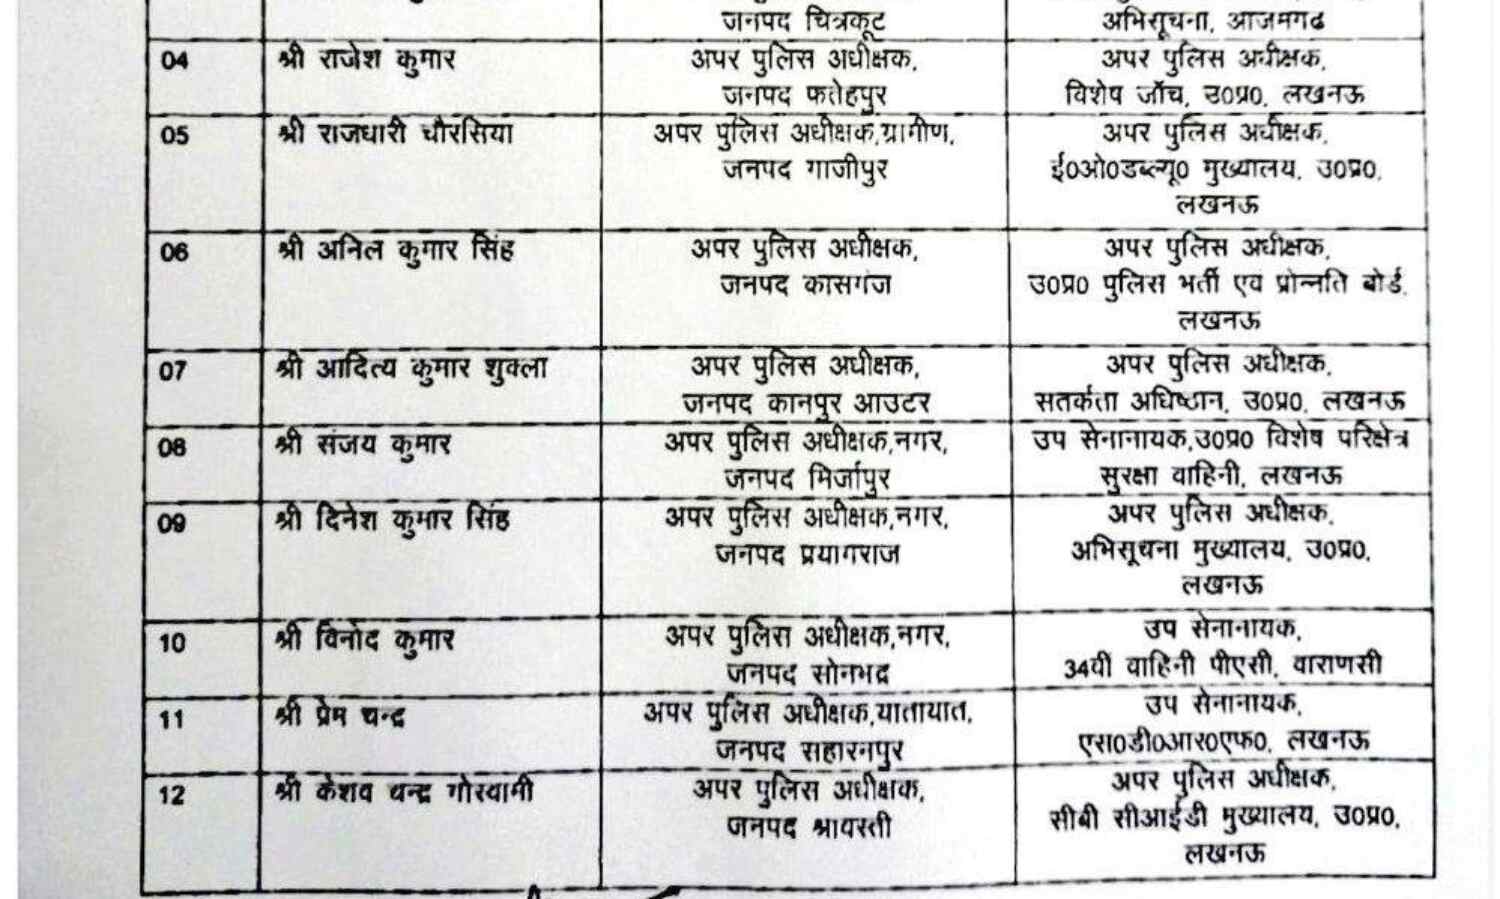 जनपद चित्रकूट
अभिसूचना, आजमगढ
04 श्री राजेश कुमार अपर पुलिस अधीक्षक, अपर पुलिस अधीक्षक,
जनपद फतेहपुर विशेष जॉच, उ0प्र0, लखनऊ
05 श्री राजधारी चौरसिया अपर पुलिस अधीक्षक,ग्रामीण, अपर पुलिस अधीक्षक,
जनपद गाजीपुर ई0ओ0डब्ल्यू0 मुख्यालय, उ0प्र0,
लखनऊ
06 श्री अनिल कुमार सिंह अपर पुलिस अधीक्षक, अपर पुलिस अधीक्षक,
जनपद कासगंज उ0प्र0 पुलिस भर्ती एवं प्रोन्नति बोर्ड,
लखनऊ
07 श्री आदित्य कुमार शुक्ला अपर पुलिस अधीक्षक, अपर पुलिस अधीक्षक,
जनपद कानपुर आउटर सतर्कता अधिष्ठान, उ0प्र0, लखनऊ
08 श्री संजय कुमार अपर पुलिस अधीक्षक,नगर, उप सेनानायक,उ0प्र0 विशेष परिक्षेत्र
जनपद मिर्जापुर सुरक्षा वाहिनी, लखनऊ
09 श्री दिनेश कुमार सिंह अपर पुलिस अधीक्षक,नगर, अपर पुलिस अधीक्षक,
जनपद प्रयागराज अभिसूचना मुख्यालय, उ0प्र0,
लखनऊ
10 श्री विनोद कुमार अपर पुलिस अधीक्षक,नगर, उप सेनानायक,
जनपद सोनभद्र 34वी वाहिनी पीएसी, वाराणसी
11 श्री प्रेम चन्द्र अपर पुलिस अधीक्षक,यातायात, उप सेनानायक,
जनपद सहारनपुर एस0डी0आर0एफ0, लखनऊ
12 श्री केशव चन्द्र गोस्वामी अपर पुलिस अधीक्षक, अपर पुलिस अधीक्षक,
जनपद श्रावस्ती सीबी सीआईडी मुख्यालय, उ0प्र0,
लखनऊ